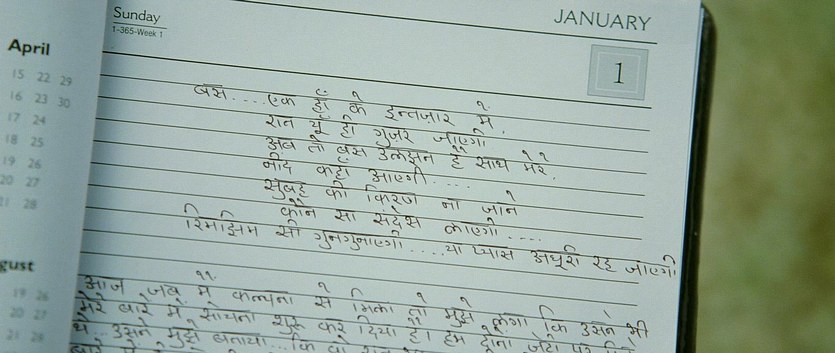 Sunday
1-365-Week 1
JANUARY
1
April
15 22 29
16 23 30
17 24
18 25
19 26
20 27
21 28
gust
19 26
20 27
21 28
बस....एक हाँ के इन्तजार में,
रात यूँ ही गुजर जाएगी
अब तो बस उलझन है साथ मेरे,
नींद कहाँ आएगी....
सुबह की किरण ना जाने
कौन सा संदेश लाएगी....
रिमझिम सी गुनगुनाएगी....या प्यास अधूरी रह जाएगी
आज जब मैं कल्पना से मिला तो मुझे लगा कि उसने भी
मेरे बारे में सोचना शुरू कर दिया है। हम दोनों
थे...उसने मुझे बताया...कि वो
बारे में